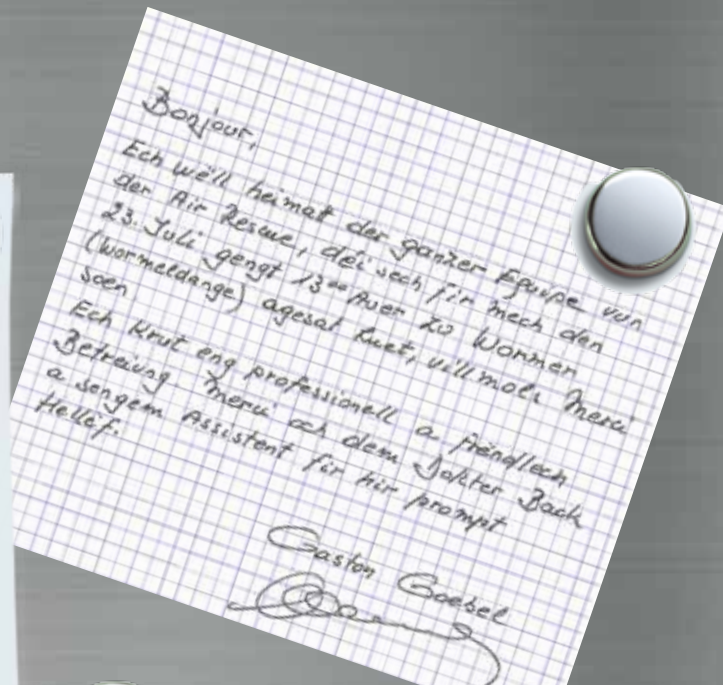 Bonjour,
Ech wëll heimat der ganzer Equipe vun
der Air Rescue, déi sech fir mech den
23. Juli géngt 13°° Auer zu Wormer
(Wormeldange) agesat huet, villmols Merci
soen.
Ech krut eng professionell a frëndlech
Betreiung. Merci och dem Dokter Back
a sengem Assistent fir hir prompt
Hëllef.
Gaston Goebel